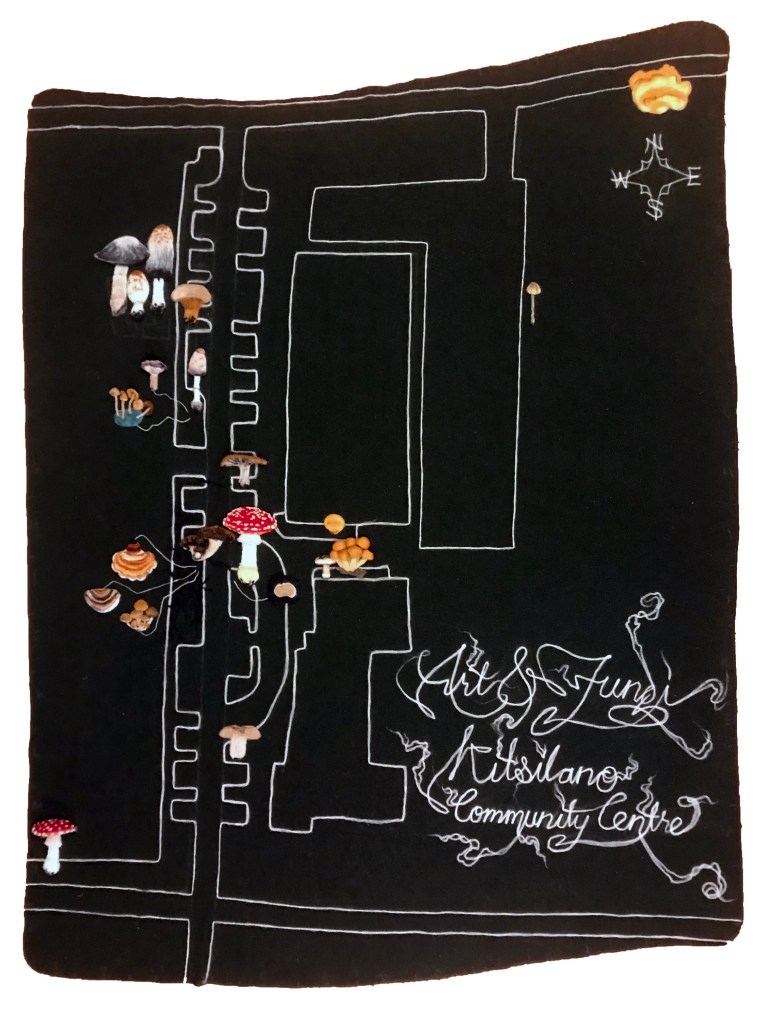 N
W E
S
Art & Fungi
Kitsilano
Community Centre